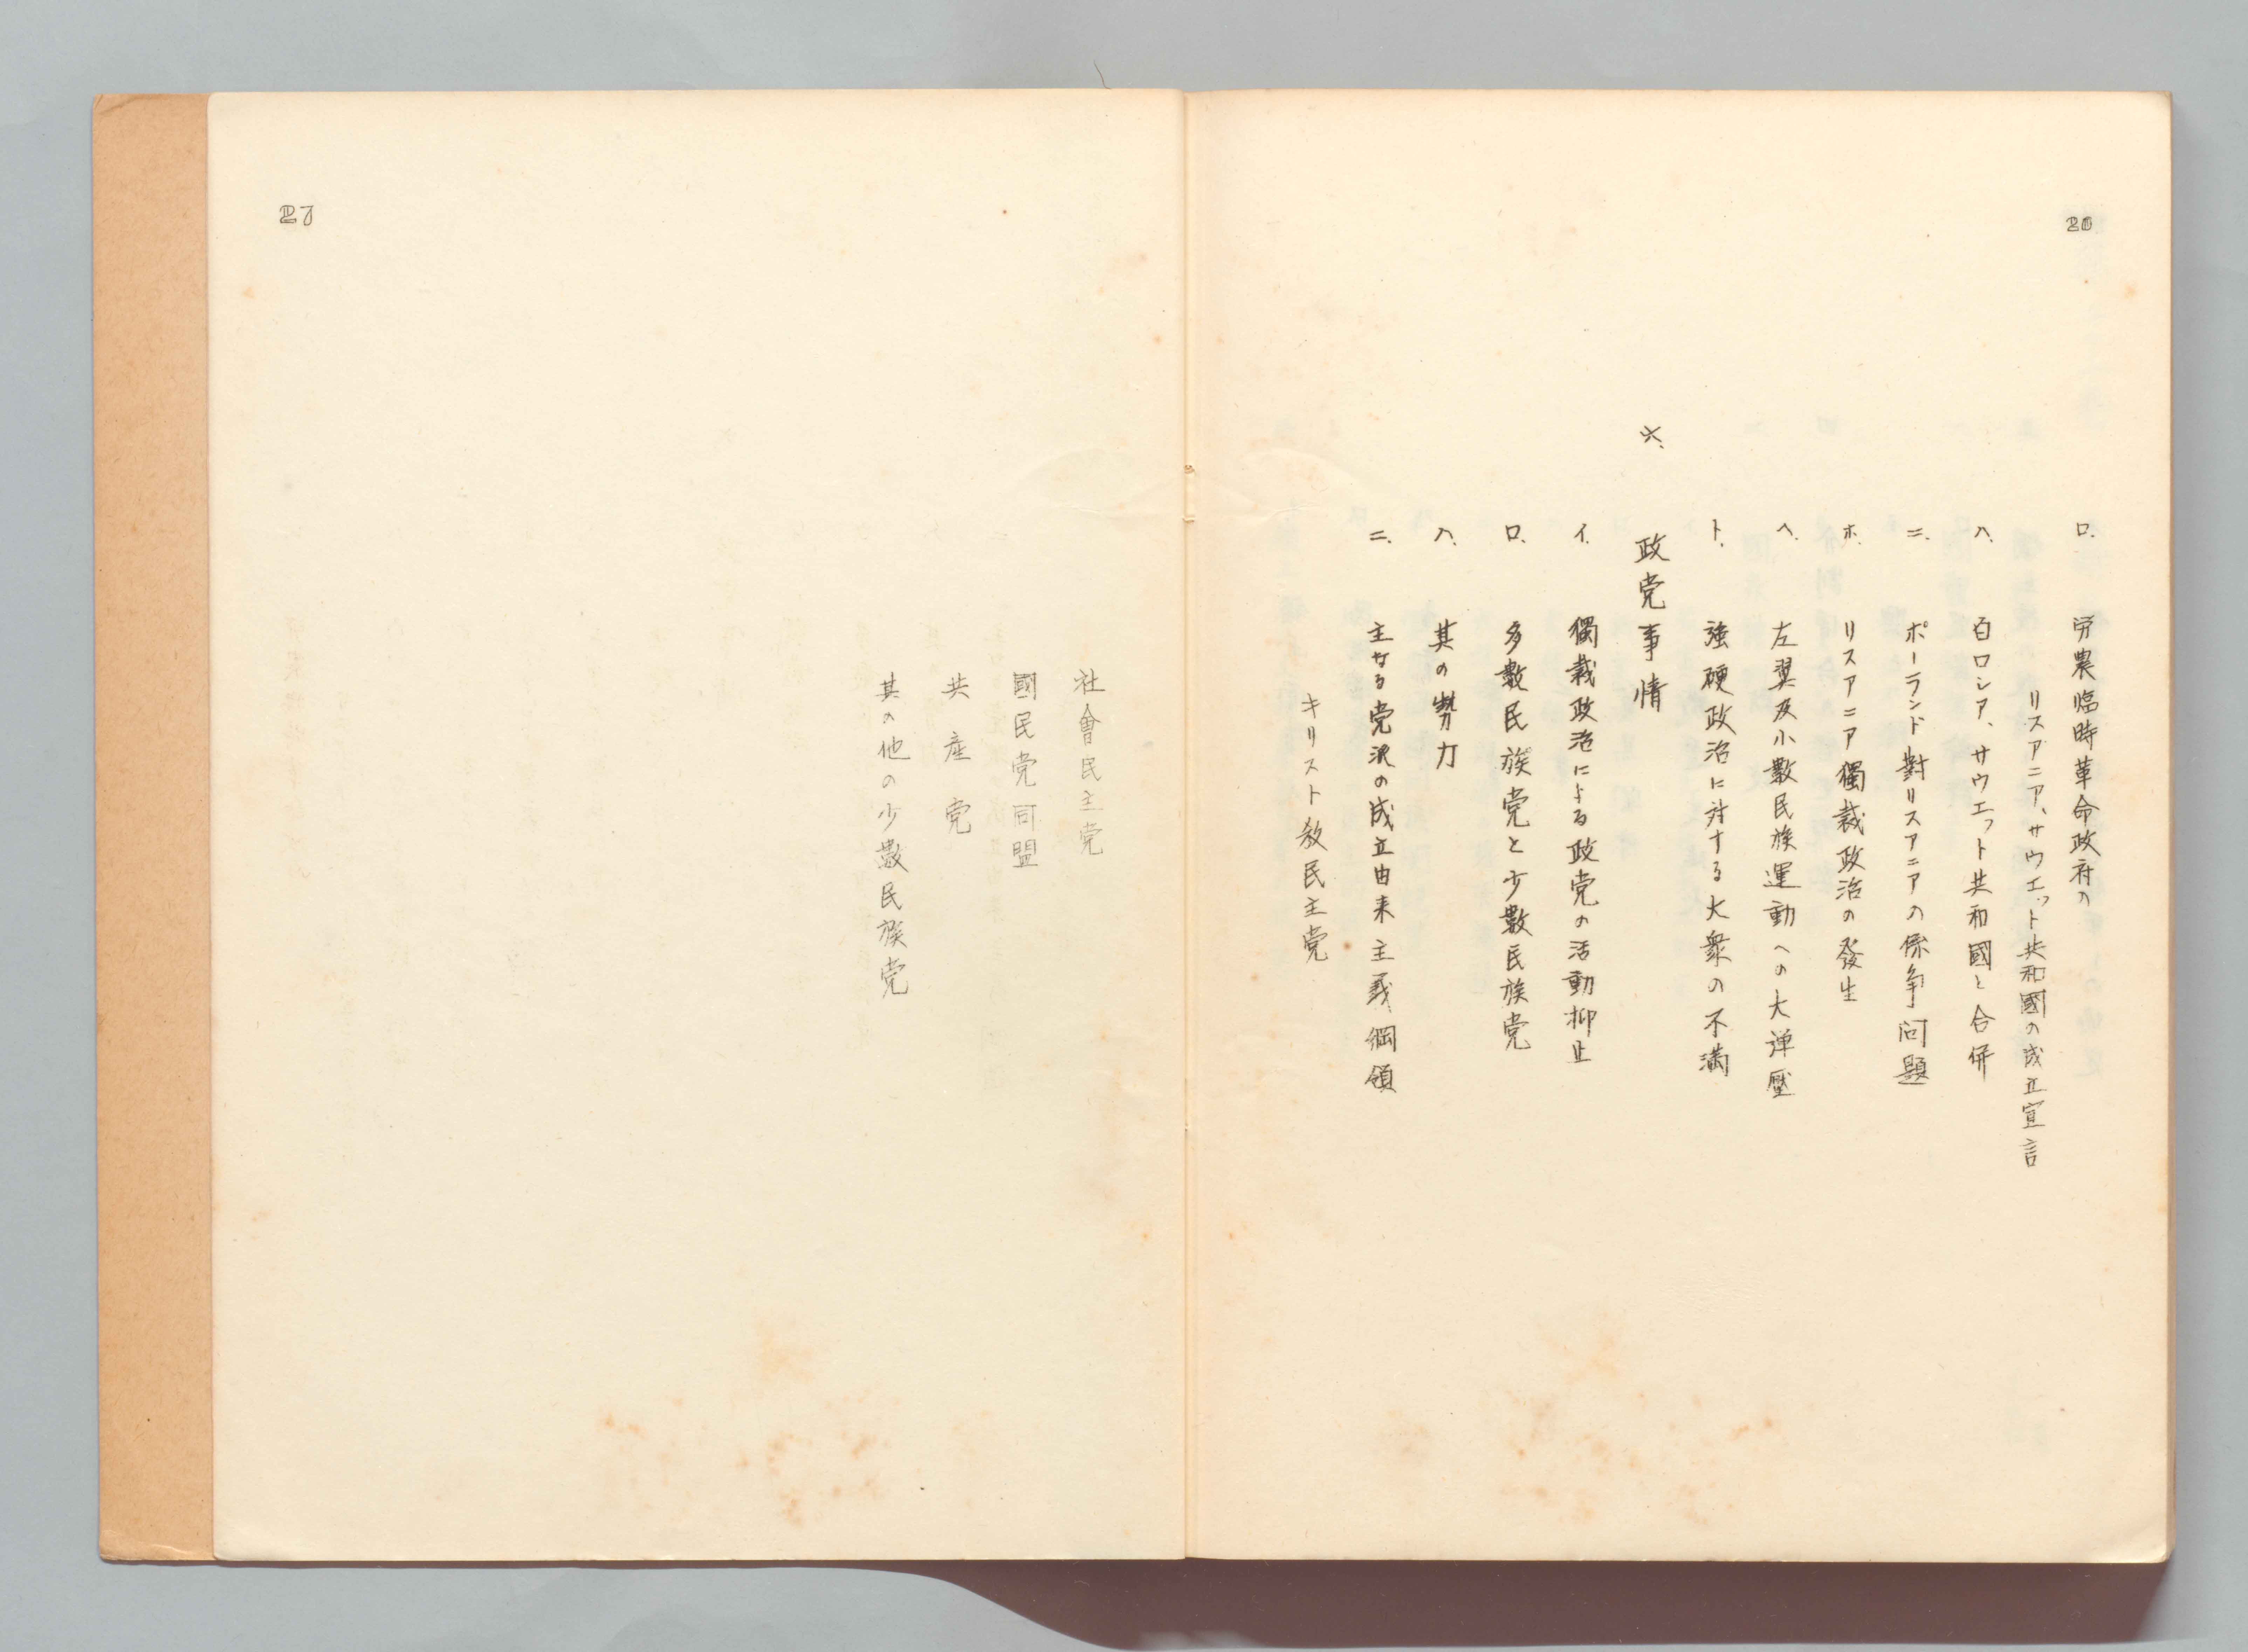 ロ. 労農臨時革命政府の
リスアニア、サウエット共和國の成立宣言
ハ. 白ロシア、サウエット共和國と合併
ニ. ポーランド對リスアニアの係争问題
ホ. リスアニア獨裁政治の發生
ヘ. 左翼及小數民族運動への大弾壓
ト. 強硬政治に対する大衆の不満
六. 政党事情
イ. 獨裁政治による政党の活動抑止
ロ. 多數民族党と少數民族党
ハ. 其の勢力
ニ. 主なる党派の成立由来主義綱領
キリスト教民主党
社會民主党
國民党同盟
共産党
其の他の少數民族党